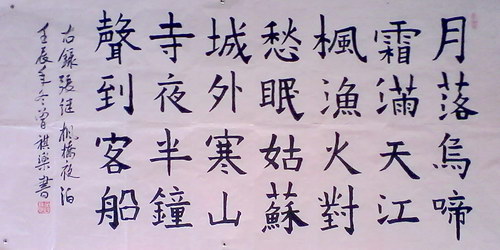 月落烏啼
霜滿天江
楓漁火對
愁眠姑蘇
城外寒山
寺夜半鐘
聲到客船
右錄張继楓橋夜泊
壬辰年冬曾祺樂書